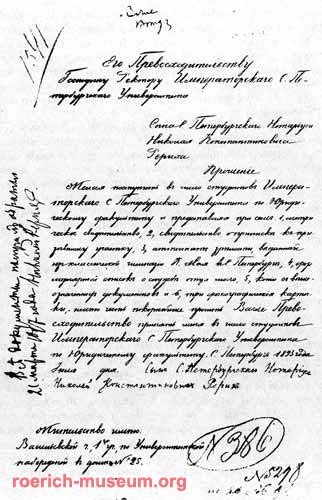 1541
Его Превосходительству
Господину Ректору Императорскаго С. Пе-
тербургскаго Университета
Сына С. Петербургскаго Нотаріуса
Николая Константиновича
Рериха
Прошеніе
Желая поступить в число студентов Импера-
торскаго С. Петербургскаго Университета по Юриди-
ческому факультету и представляя при сем: 1, метри-
ческое свидетельство, 2, свидетельство о приписке к при-
зывному участку, 3, аттестат зрелости, выданный
из классической гимназіи К. Мая в С. Петербурге, 4, фор-
мулярный список о службе отца моего, 5, копіи с выше-
означенных документов и 6, три фотографическія карточ-
ки, имею честь покорнейше просить Ваше Прево-
сходительство принять меня в число студентов
Императорскаго С. Петербургскаго Университета
по Юридическому факультету. С. Петербург 1893 года
дня. Сын С. Петербургскаго Нотаріуса
Николай Константинович Рерих
Все документы обратно
21 1898 года
Жительство имею:
Васильевской ч. 1го уч. по Университетской
набережной в доме № 25.
№ 386
№ 5298
roerich-museum.org